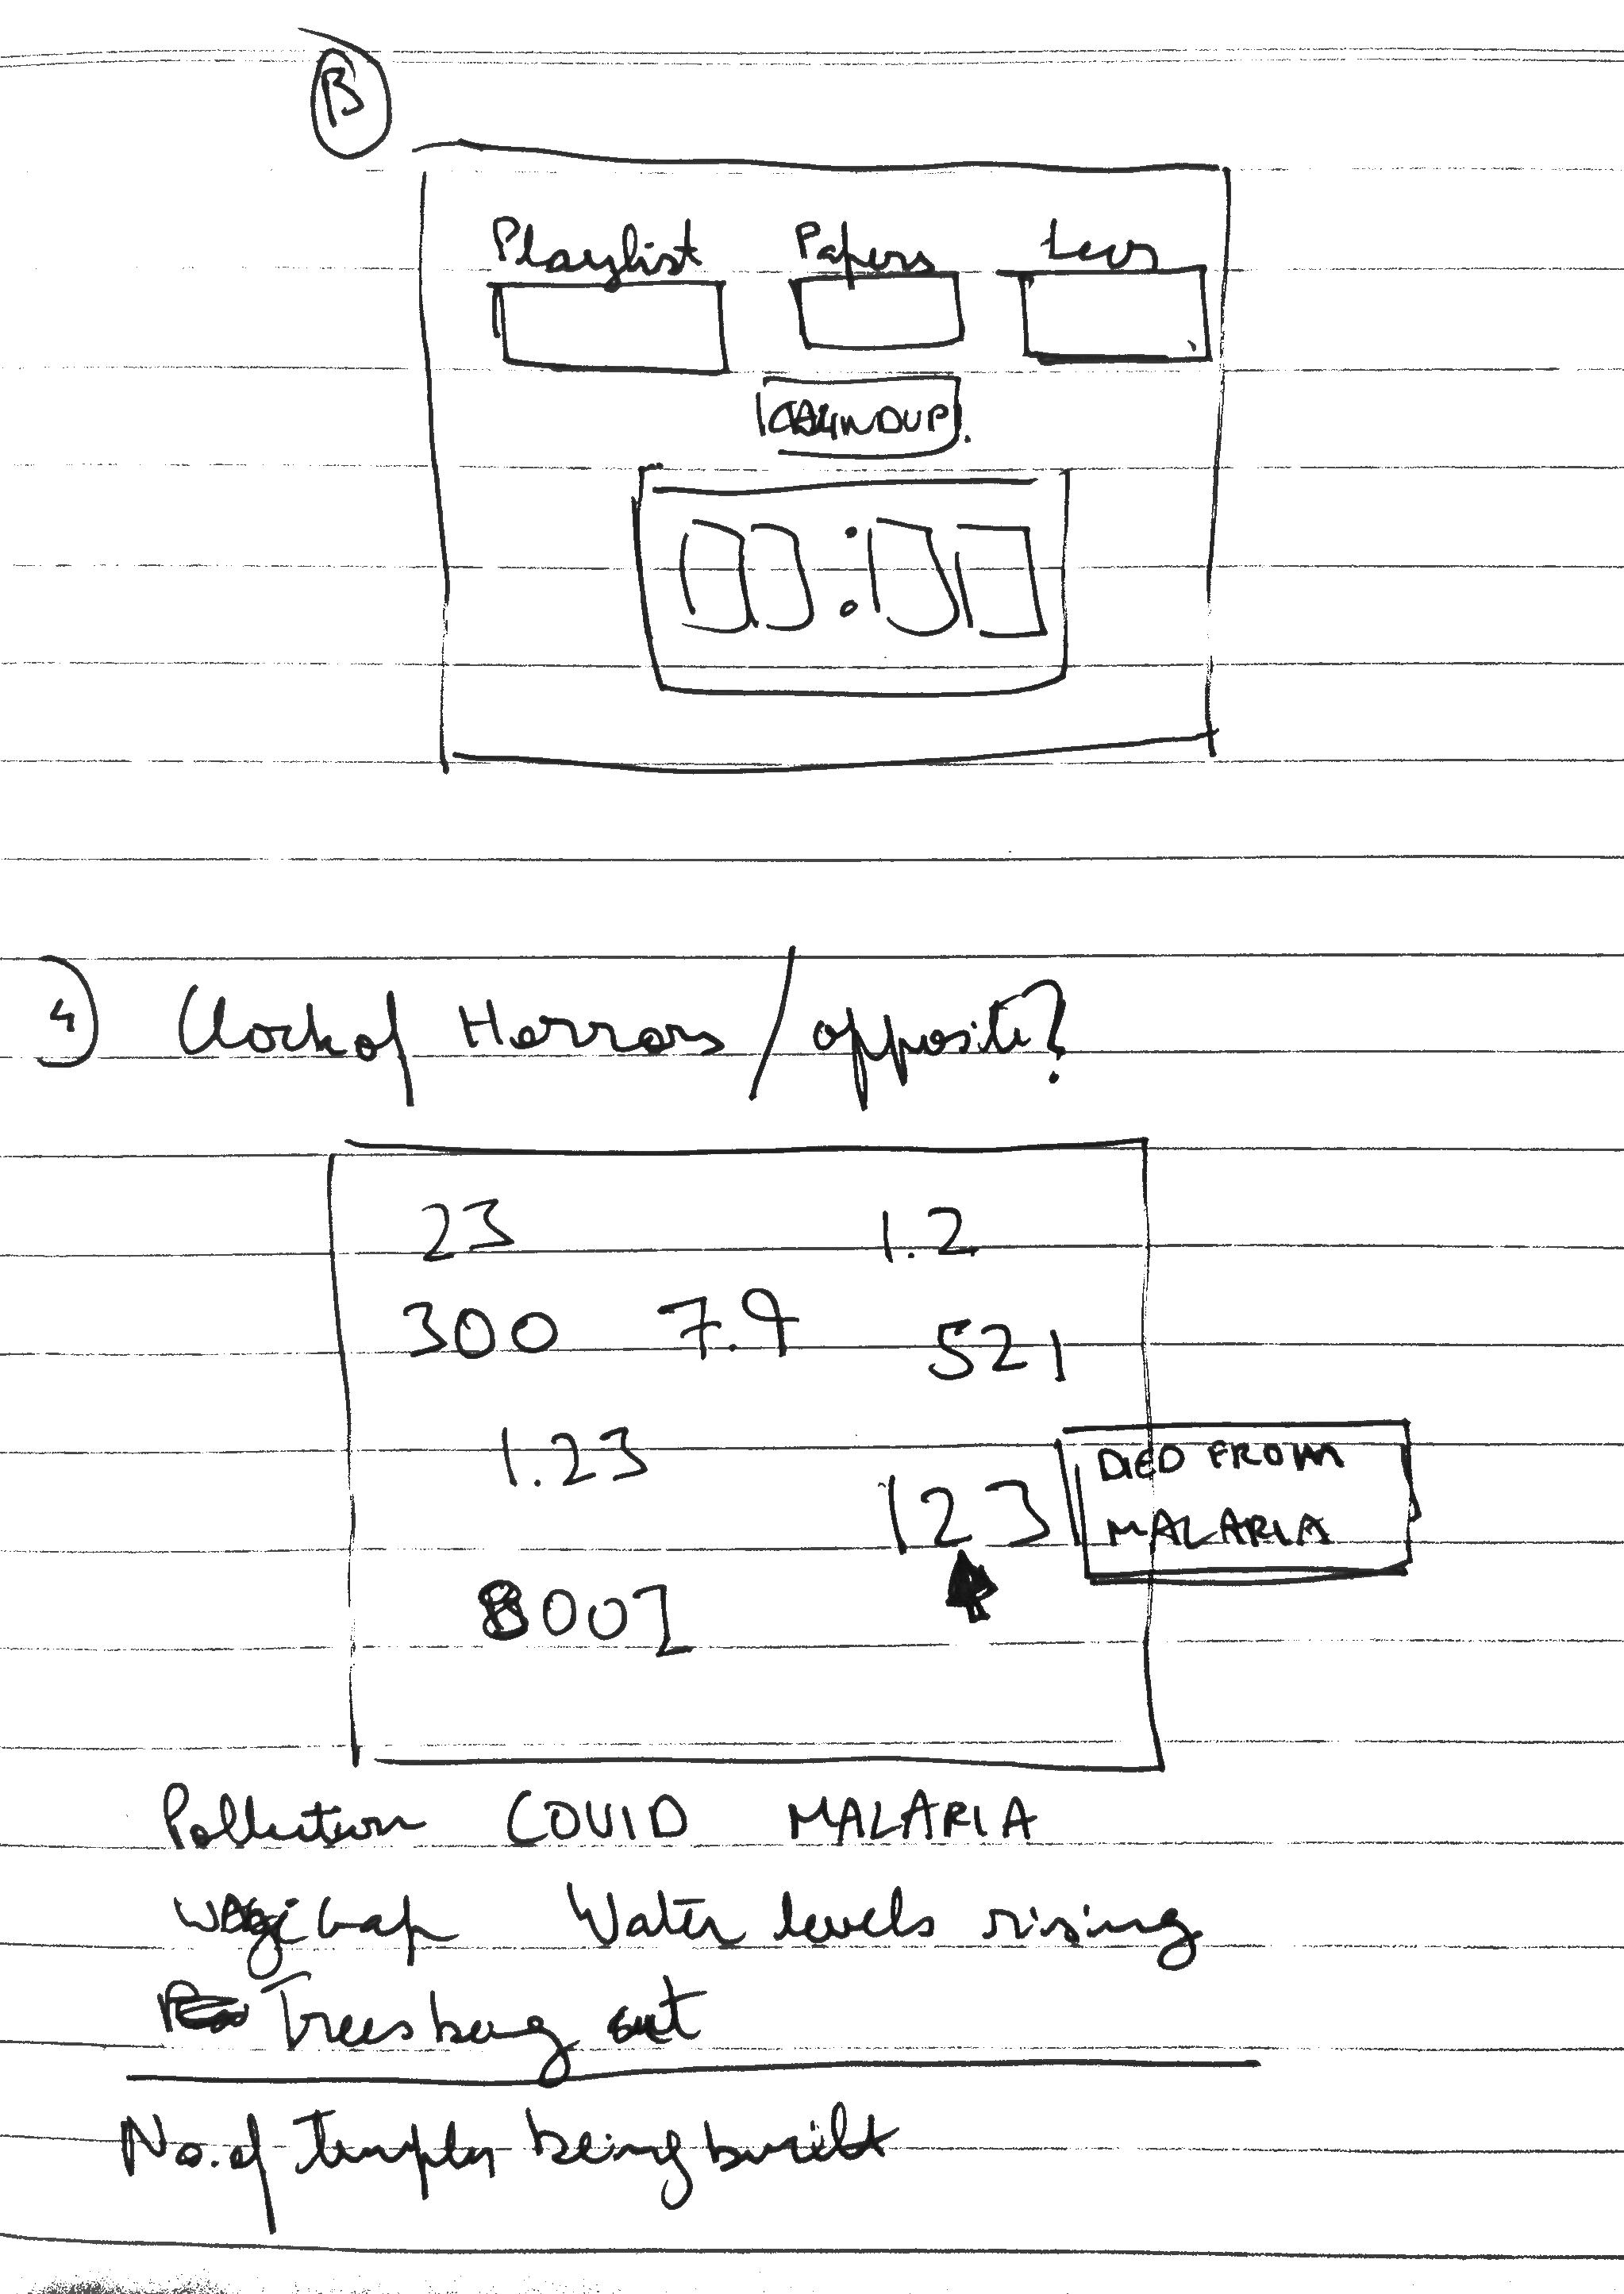 B
Playlist Papers Lecs
00:00
4) Clock of Horrors / opposite?
23 1.2
300 7.9 521
1.23
123 DIED FROM
MALARIA
8001
Pollution COVID MALARIA
Wage Gap Water levels rising
Trees being cut
No. of temples being built